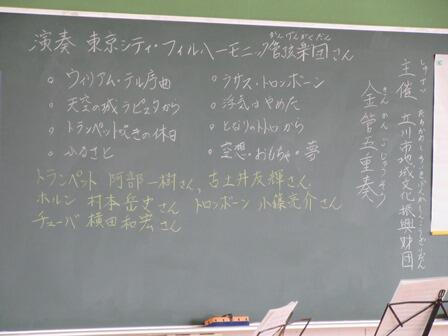 演奏 東京シティ・フィルハーモニック管弦楽団さん
かんげんがくだん
○ ウィリアム・テル序曲
○ 天空の城ラピュタから
○ トランペット吹きの休日
○ ふるさと
○ ラサス・トロンボーン
○ 浮気はやめた
○ となりのトトロから
○ 空想・おもちゃ・夢
トランペット 阿部一樹さん、古土井友輝さん
ホルン 村本岳史さん トロンボーン 小篠亮介さん
チューバ 横田和宏さん
主催 立川市地域文化振興財団
金管五重奏